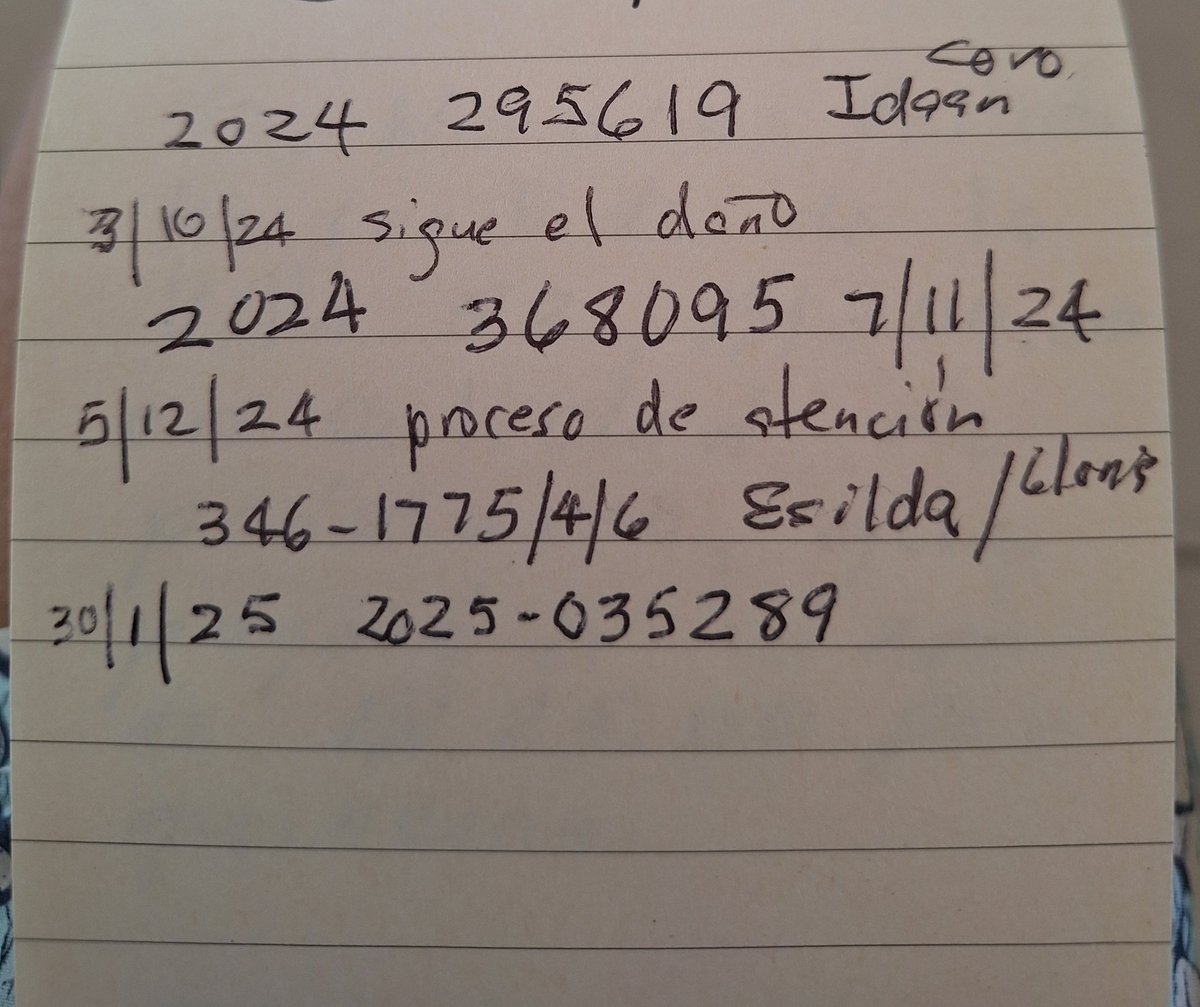 2024 295619 Idaan
3/10/24 sigue el daño
2024 368095 7/11/24
5/12/24 proceso de atención
346-1775/4/6 Esilda/
30/1/25 2025-035289